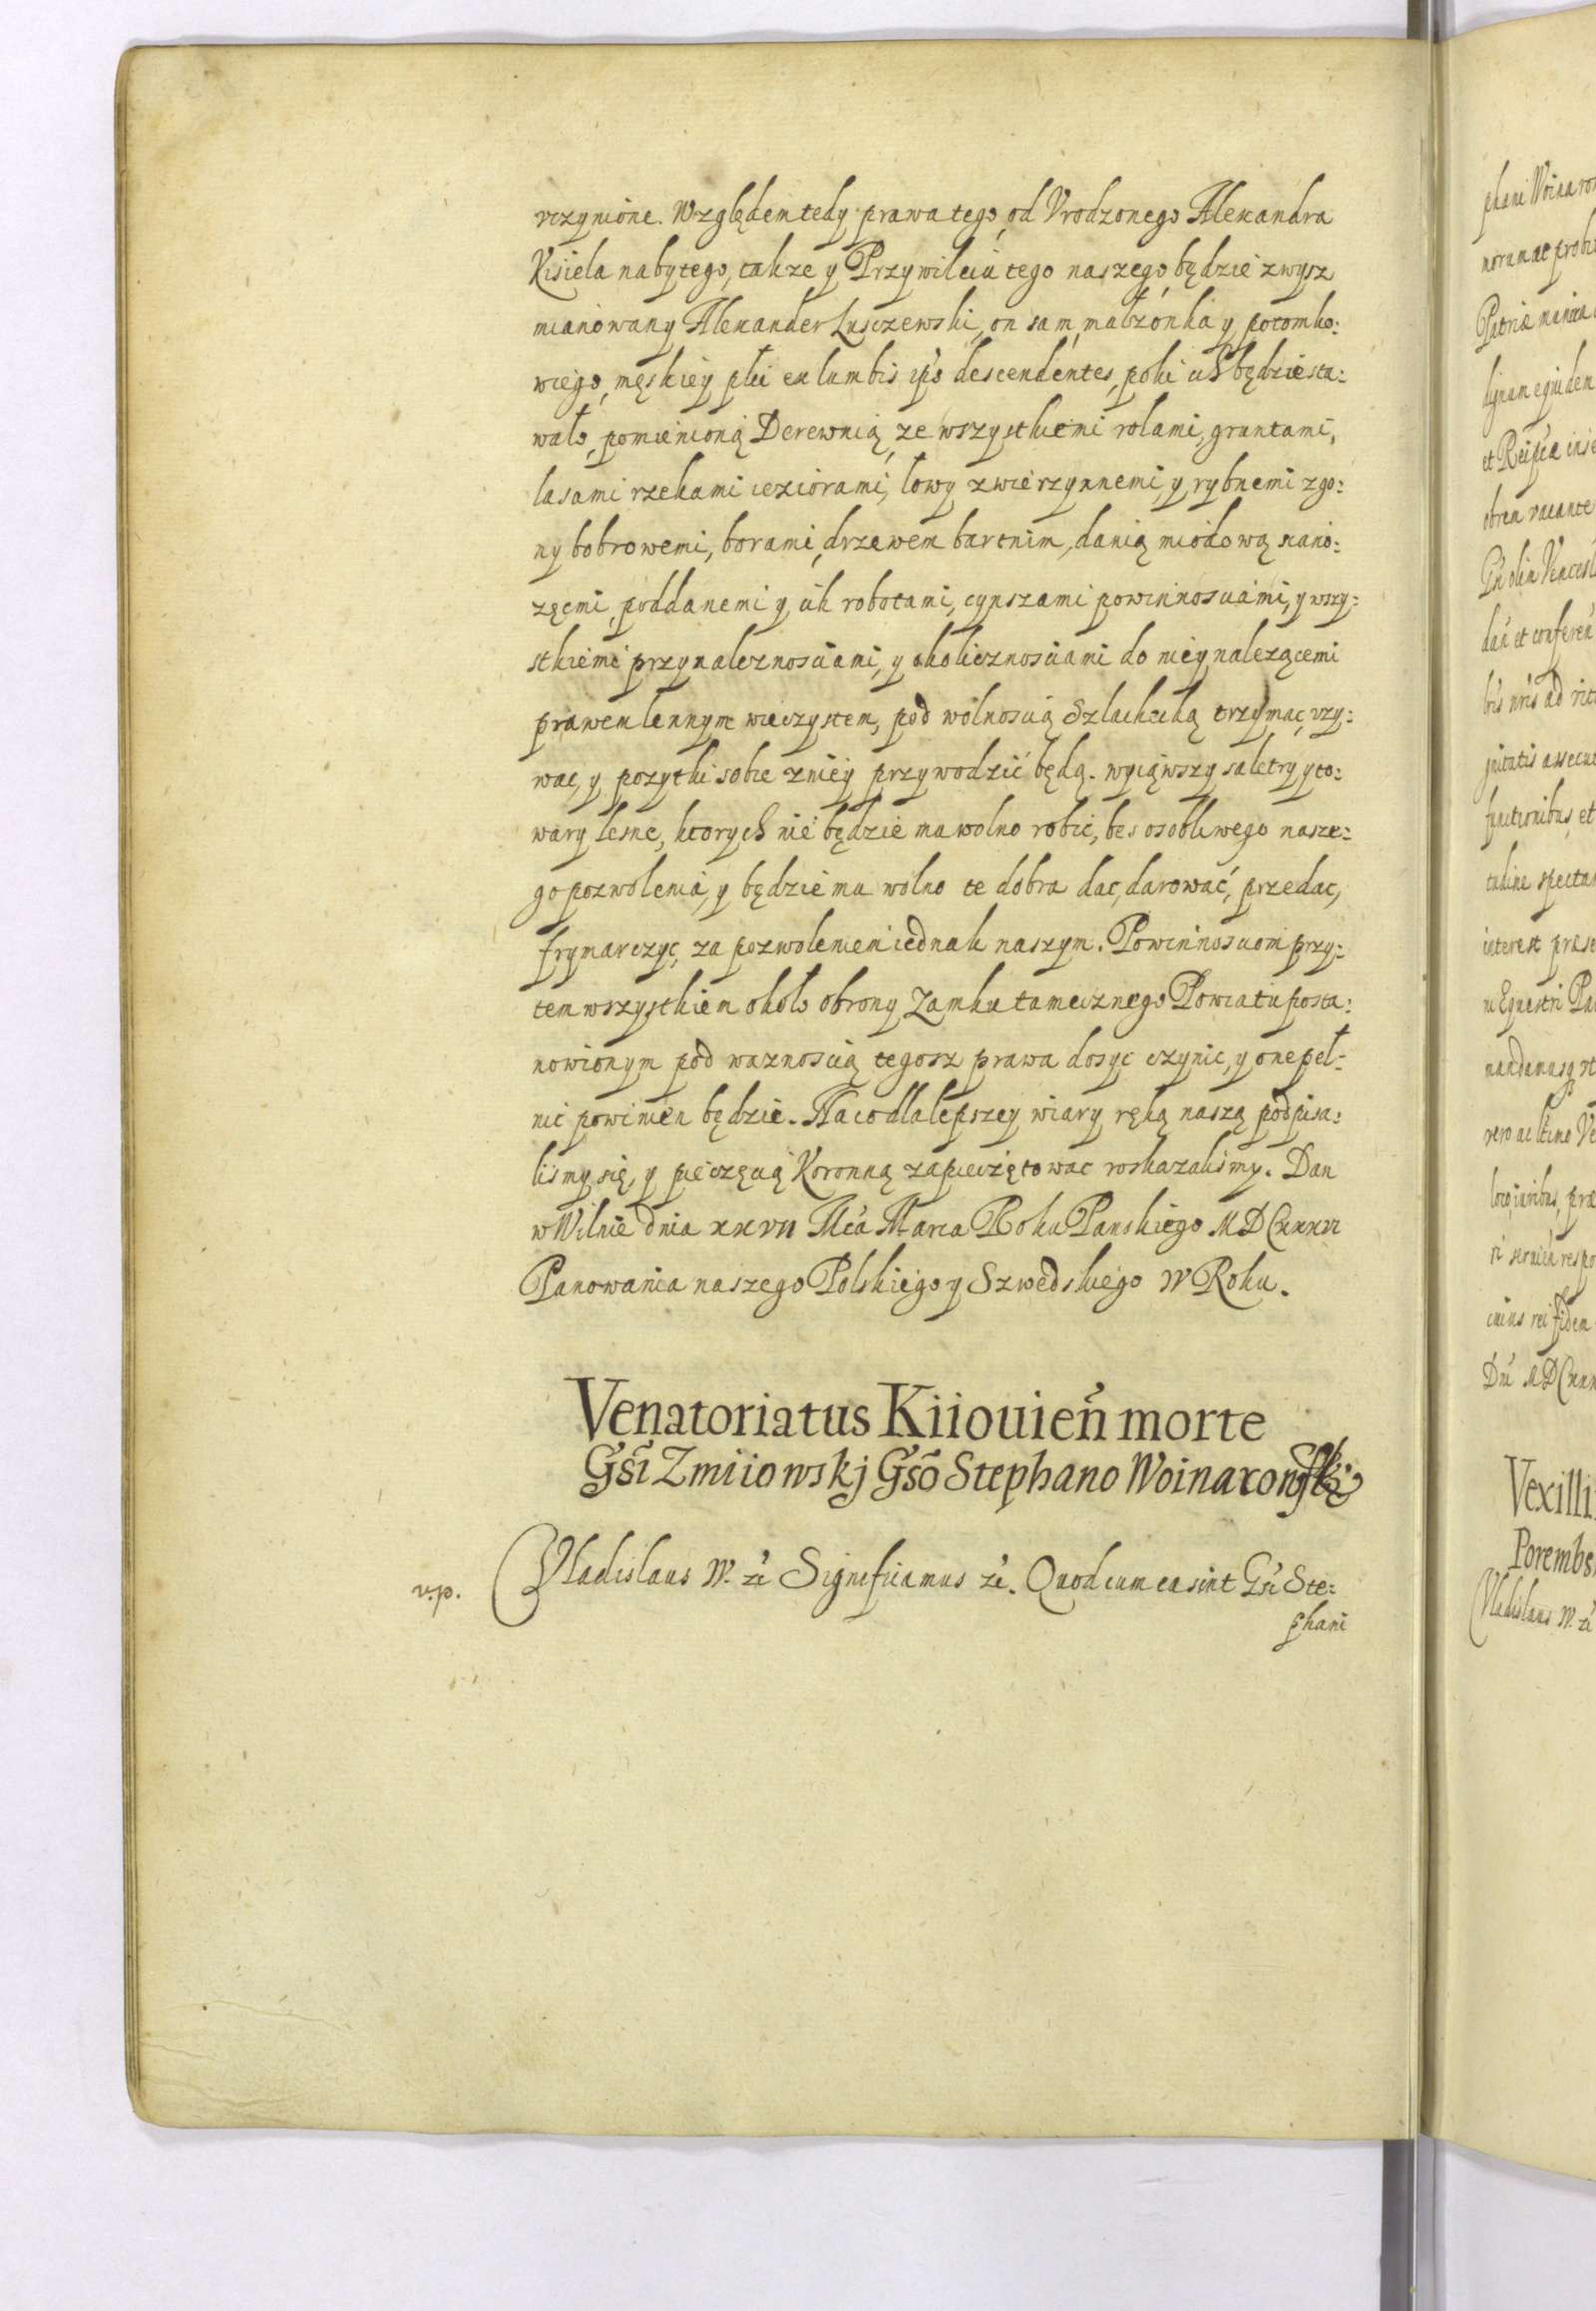 vczynione. Względem tedy prawa tego, od Vrodzonego Alexandra
Kisiela nabytego, takze y Przywileiu tego naszego, będzie zwysz
mianowany Alexander Lusczewski, on sam, małzonka y potomko:
wie go, męskiey płci ex lumbis ip̃o descendentes, poki ich będzie sta:
wało, pomienioną Derewnią, ze wszystkiemi rolami, gruntami,
lasami rzekami ieziorami, lowy zwierzynnemi, y rybnemi zgo:
ny bobrowemi, borami, drzewem bartnim, danią miodową siano:
zęcmi, poddanemi y ich robotami, cynszami powinnosciami, y wszy:
stkiemi przynaleznosciami, y okolicznosciami do niey nalezącemi
prawem lennym wieczystem, pod wolnoscią Szlachecką trzymac, vzy:
wac, y pozytki sobie zniey przywodzić będą. wyiąwszy saletry y to:
wary lesne, ktorych nie będzie mu wolno robic, bes osobliwego nasze:
go pozwolenia, y będzie mu wolno te dobra dac, darować, przedac,
frymarczyc, za pozwoleniem iednak naszym. Powinnosciom przy:
tem wszystkiem około obrony Zamku tamecznego Powiatu posta:
nowionym pod waznoscią tegosz prawa dosyc czynic, y one peł:
nic powinien będzie. Na co dla lepszey wiary ręką naszą podpisa:
lismy się, y pieczęcią Koronną zapieczętowac roskazalismy. Dan
w Wilnie dnia xxvii Mcã Marca Roku Panskiego MDCxxxvi
Panowania naszego Polskiego y Szwedskiego IV Roku.
Venatoriatus Kiiouień morte
Gs̃i Zmiiowskj Gs̃o Stephano Woinarowsk:
v.p.
Vladislaus IV. zč Significamus zč. Quod cum ea sint Gs̃i Ste:
phani
phani Woinaro
morum ac probi
Patriæ
et
vacante
Gñ olim Vencesl
dañ et conferen
bis nr̃is ad
functionibus, et
tudine
interest
Equestri
rei fidem
Dñi MDCxxx
Vexilli
Porembs
Vladislaus IV. zč